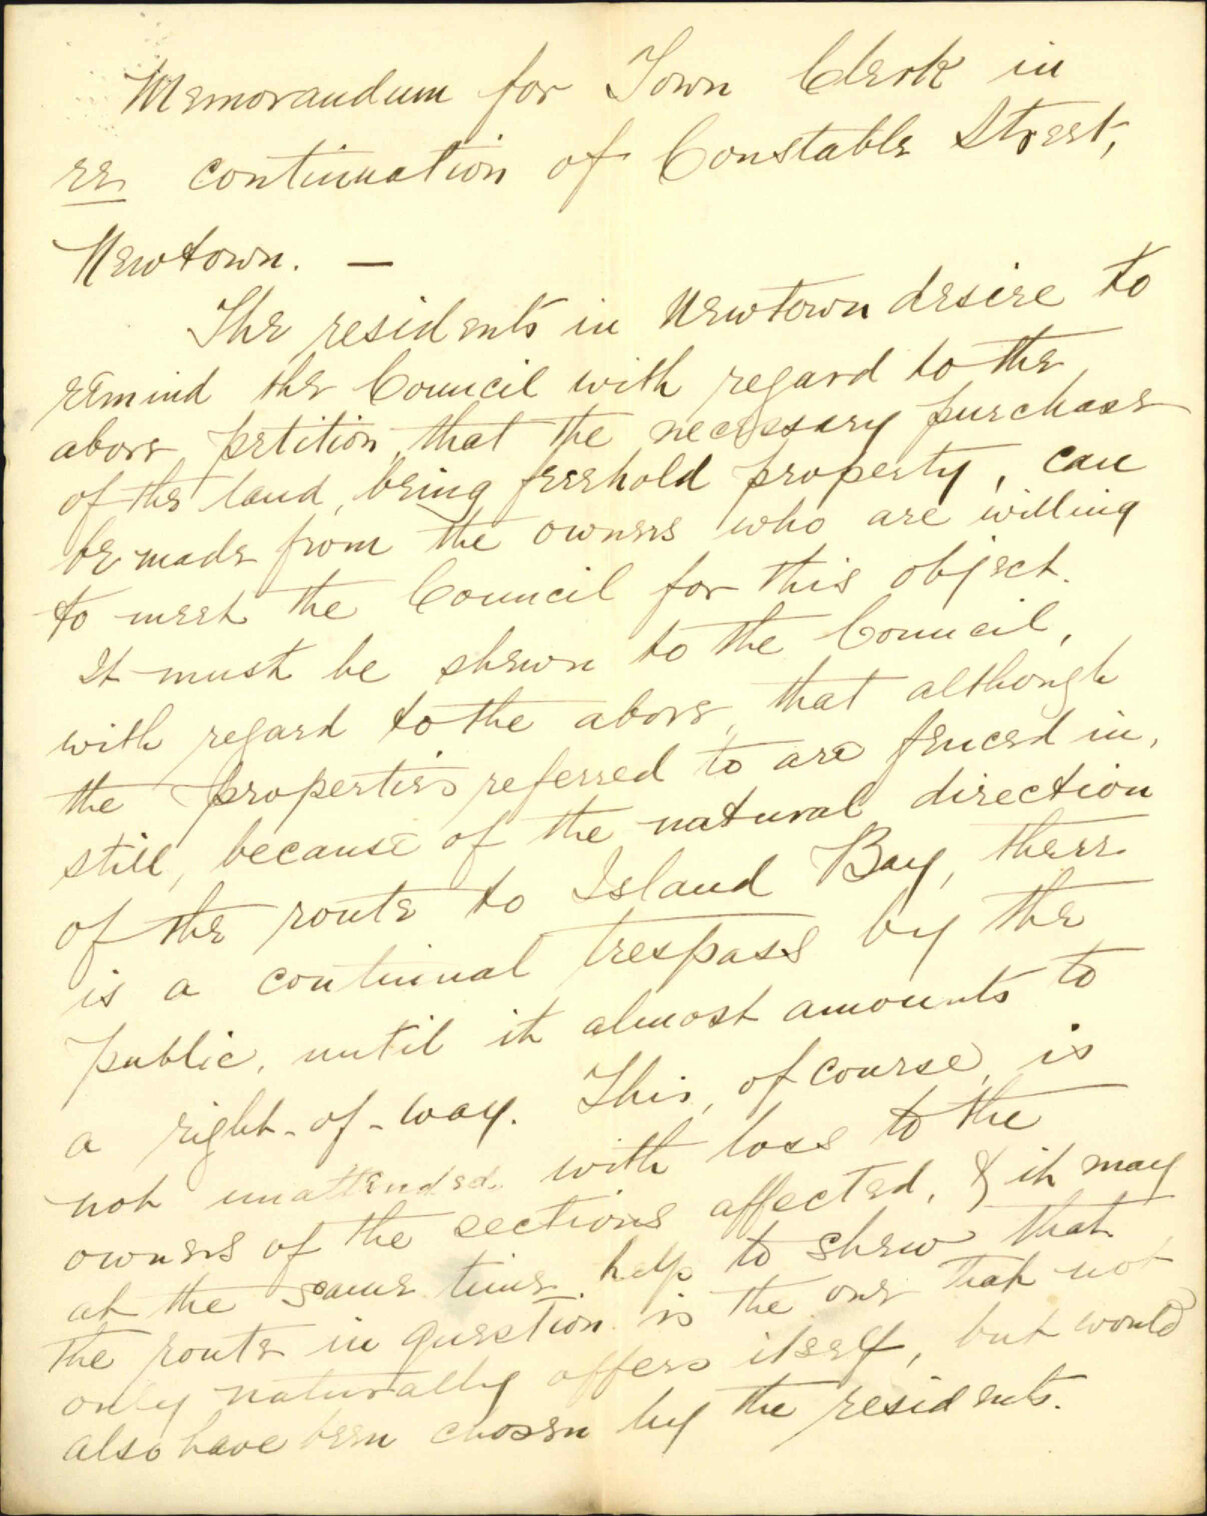 Memorandum for Town Clerk in
re continuation of Constable Street,
Newtown. —
The residents in Newtown desire to
remind the Council with regard to the
above petition, that the necessary purchase
of the land, being freehold property, can
be made from the owners who are willing
to meet the Council for this object.
It must be shewn to the Council,
with regard to the above, that although
the properties referred to are fenced in,
still, because of the natural direction
of the route to Island Bay, there
is a continual trespass by the
public, until it almost amounts to
a right-of-way. This, of course, is
not unattended with loss to the
owners of the sections affected, & it may
at the same time help to shew that
the route in question is the one that not
only naturally offers itself, but would
also have been chosen by the residents.